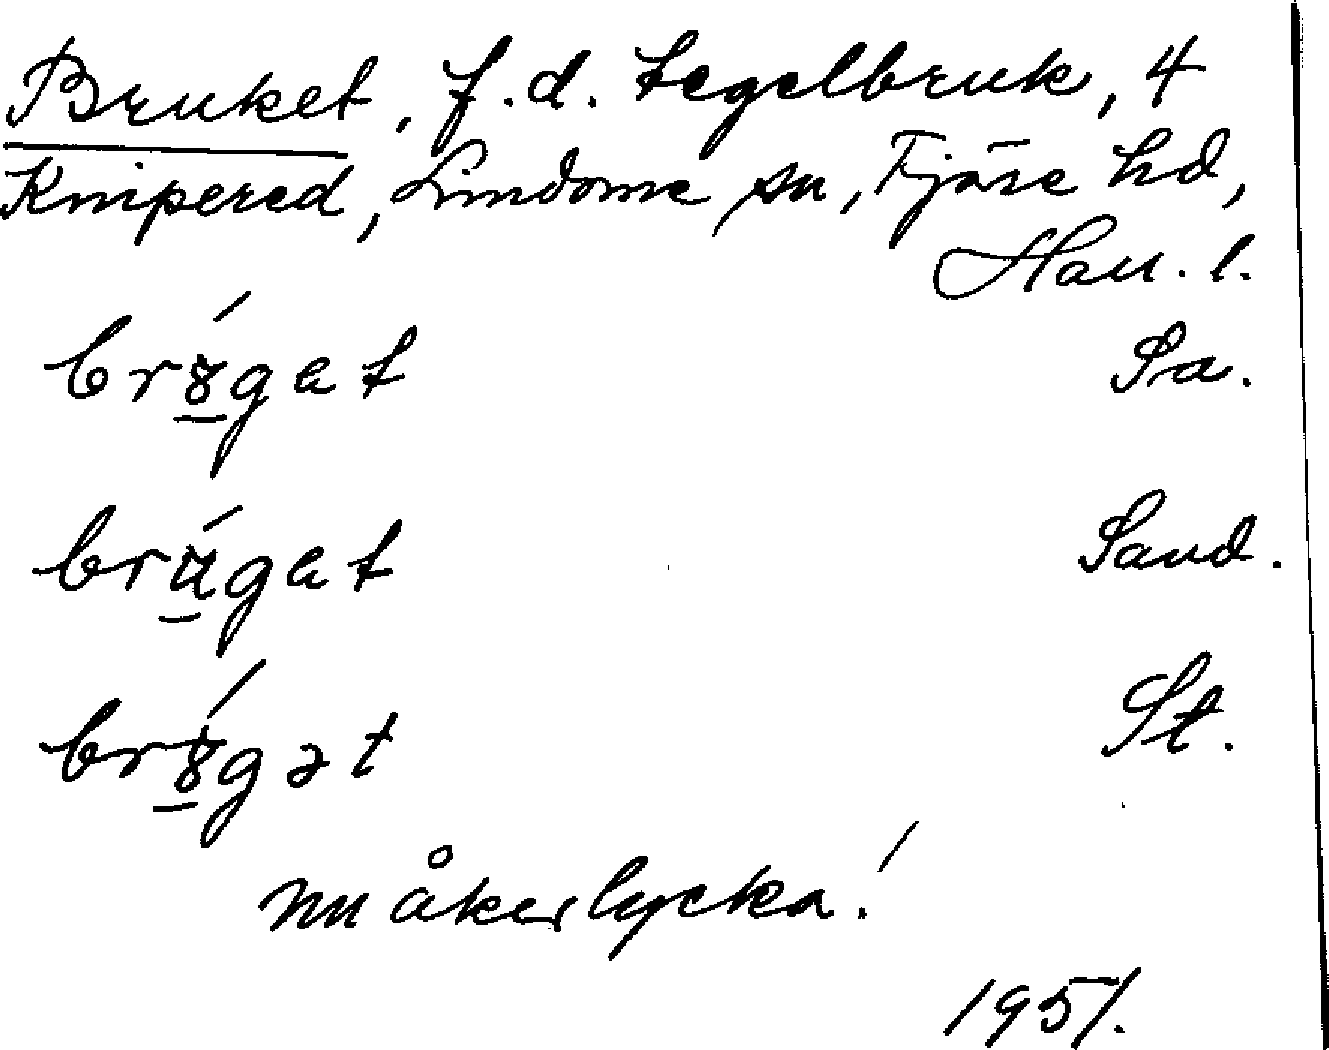 Bruket, f.d. tegelbruk, 4
Knipered, Lindome sn, Fjäre hd,
Hall. l.
br󰀀get Sa.
bruget Sand.
brgət St.
nu åkerlycka!
1951.